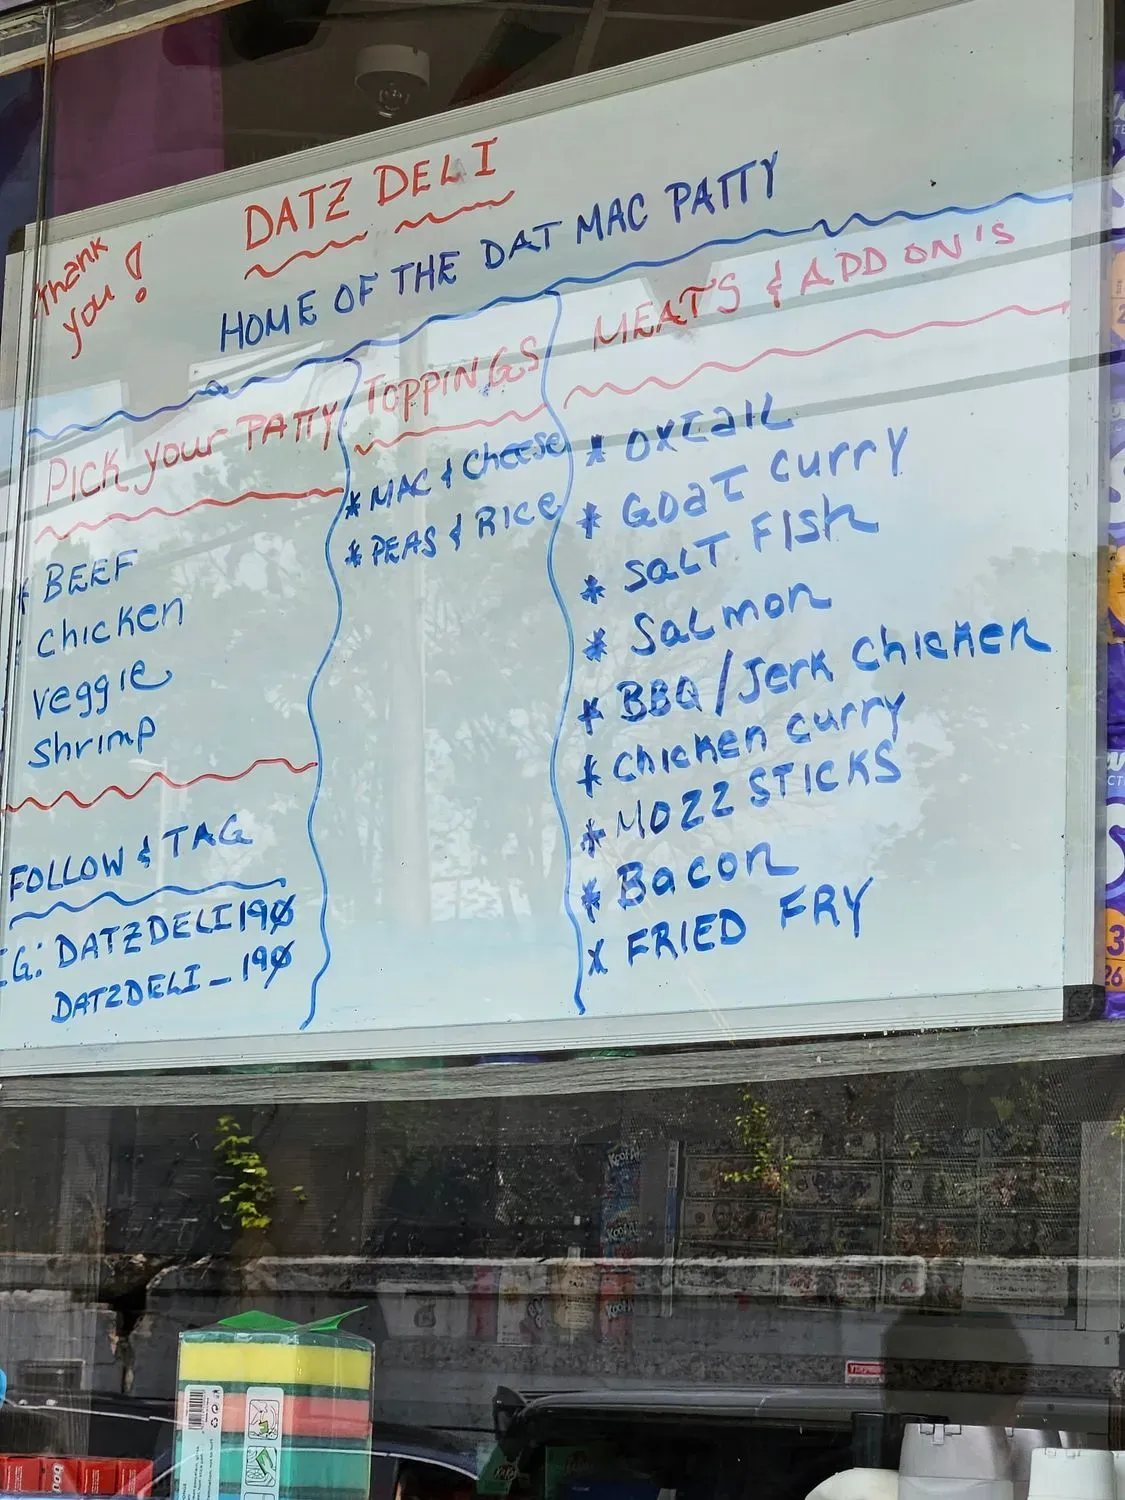 Thank
you!
DATZ DELI
HOME OF THE DAT MAC PATTY
PICK your PATTY
* BEEF
chicken
veggie
shrimp
FOLLOW & TAG
IG: DATZDELI190
DATZDELI_190
TOPPINGS
* MAC & CHEESE
* PEAS & RICE
MEAT'S & ADD ON'S
* OXTAIL
* GOAT CURRY
* SALT FISH
* Salmon
* BBQ/Jerk chicken
* chicken curry
* MOZZ STICKS
* Bacon
* FRIED FRY